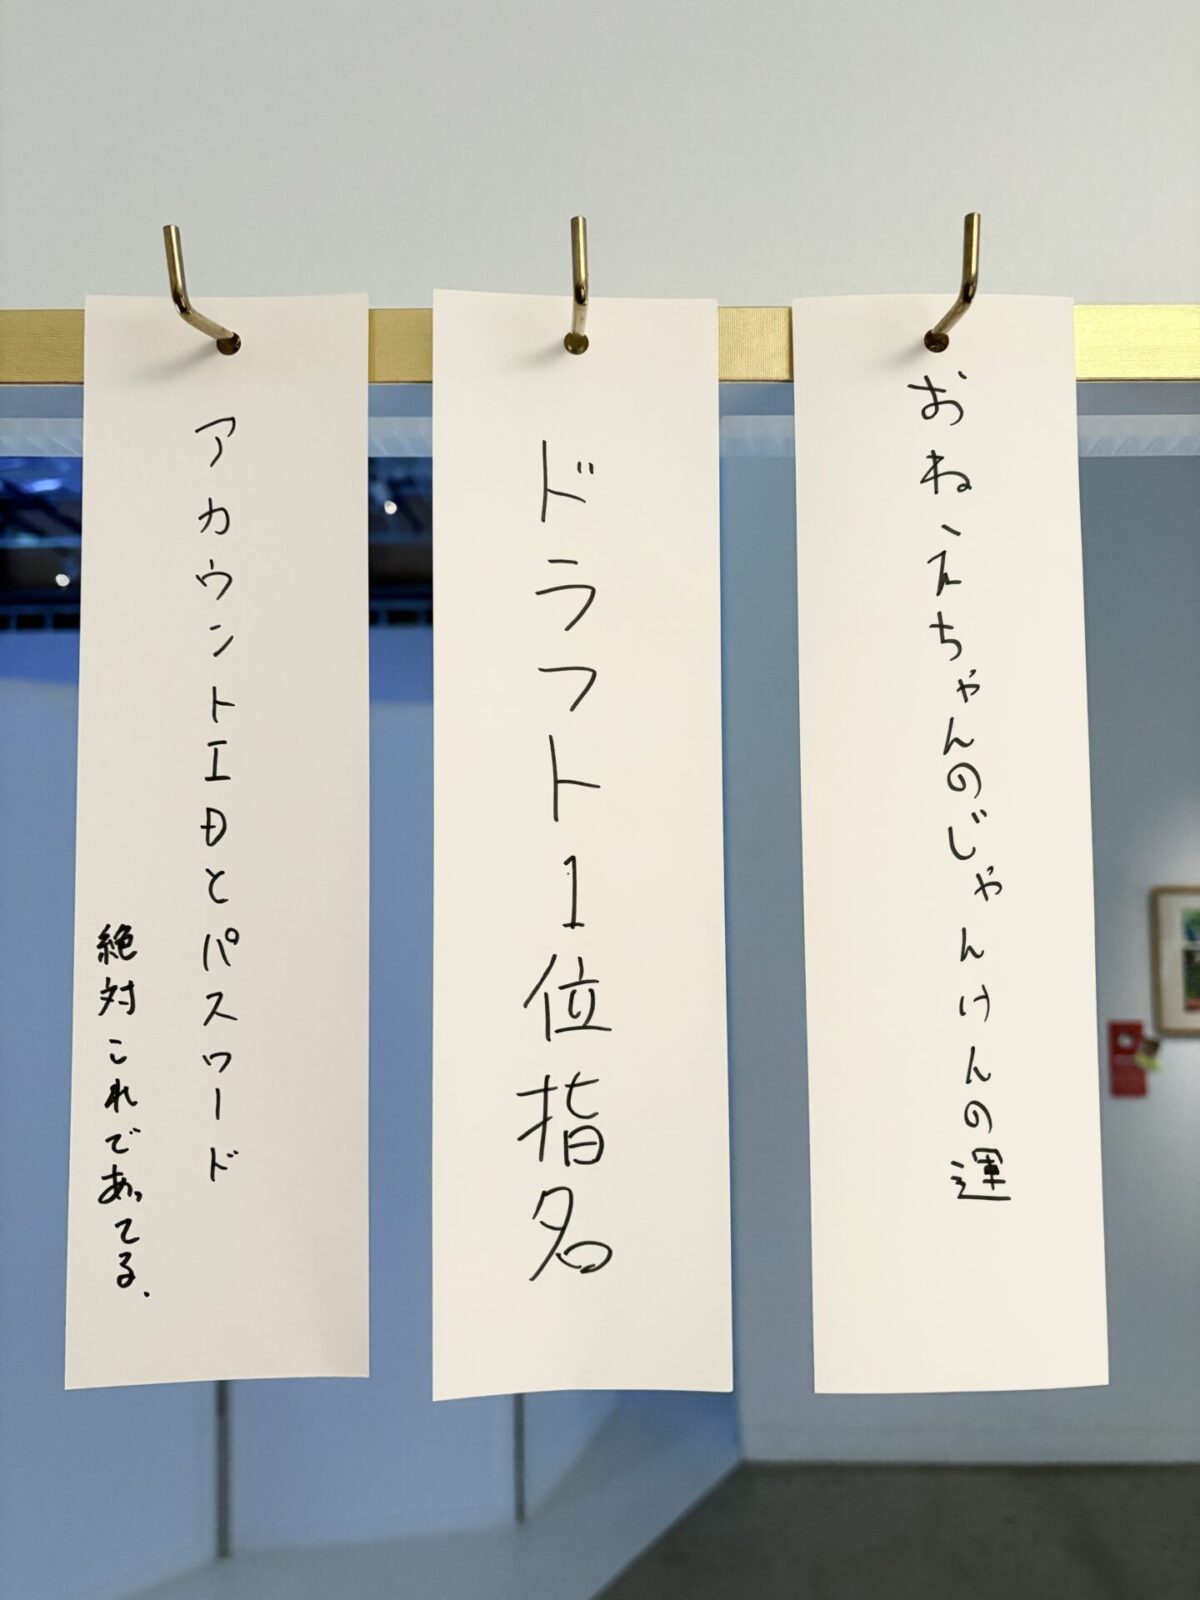 おねえちゃんのじゃんけんの運
ドラフト1位指名
アカウントIDとパスワード
絶対これであってる.